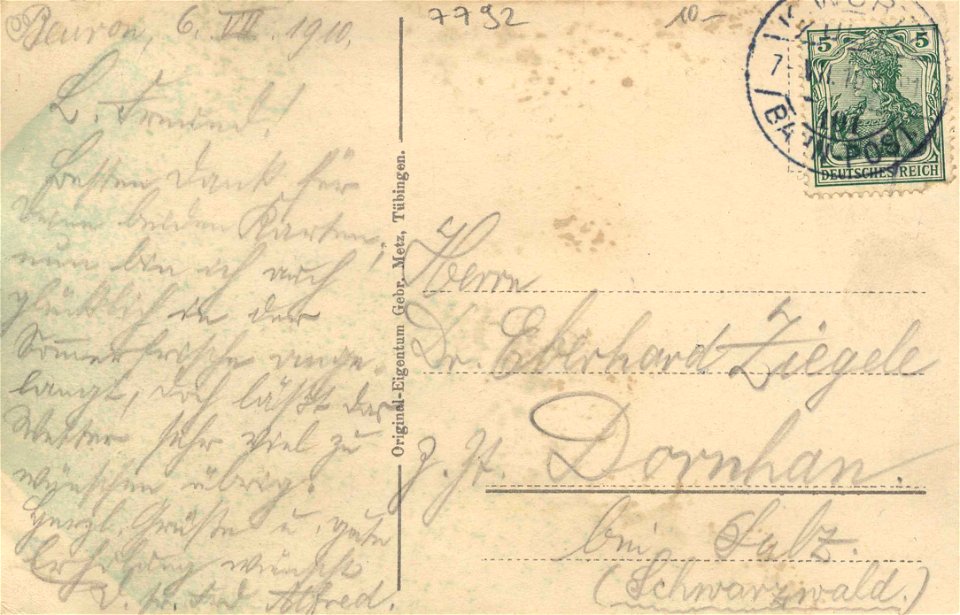 Beuron, 6. VII. 1910.
L. Freund!
Besten Dank für
Deine beiden Karten,
nun bin ich auch
glücklich in der
Sommerfrische ange-
langt, doch läßt das
Wetter sehr viel zu
wünschen übrig.
Herzl. Grüße u. gute
Erholung wünscht
D. tr. Frd Alfred.
Original-Eigentum Gebr. Metz, Tübingen.
7792
10-
WÜRT
BAHNPOST
5 5
DEUTSCHES REICH
Herrn
Dr. Eberhard Ziegele
z. Zt. Dornhan.
bei Sulz.
(Schwarzwald.)